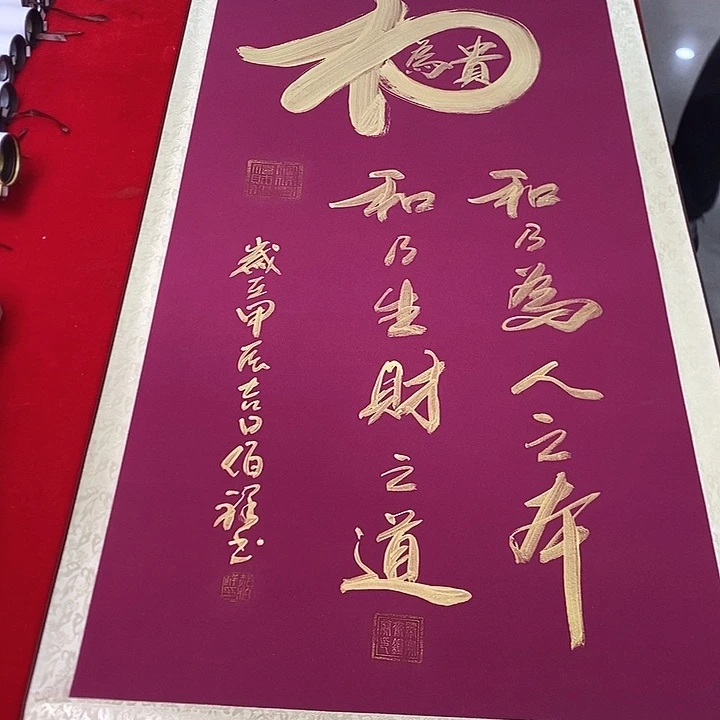 和
為貴
和乃為人之本
和乃生財之道
歲在甲辰吉日伯祥書